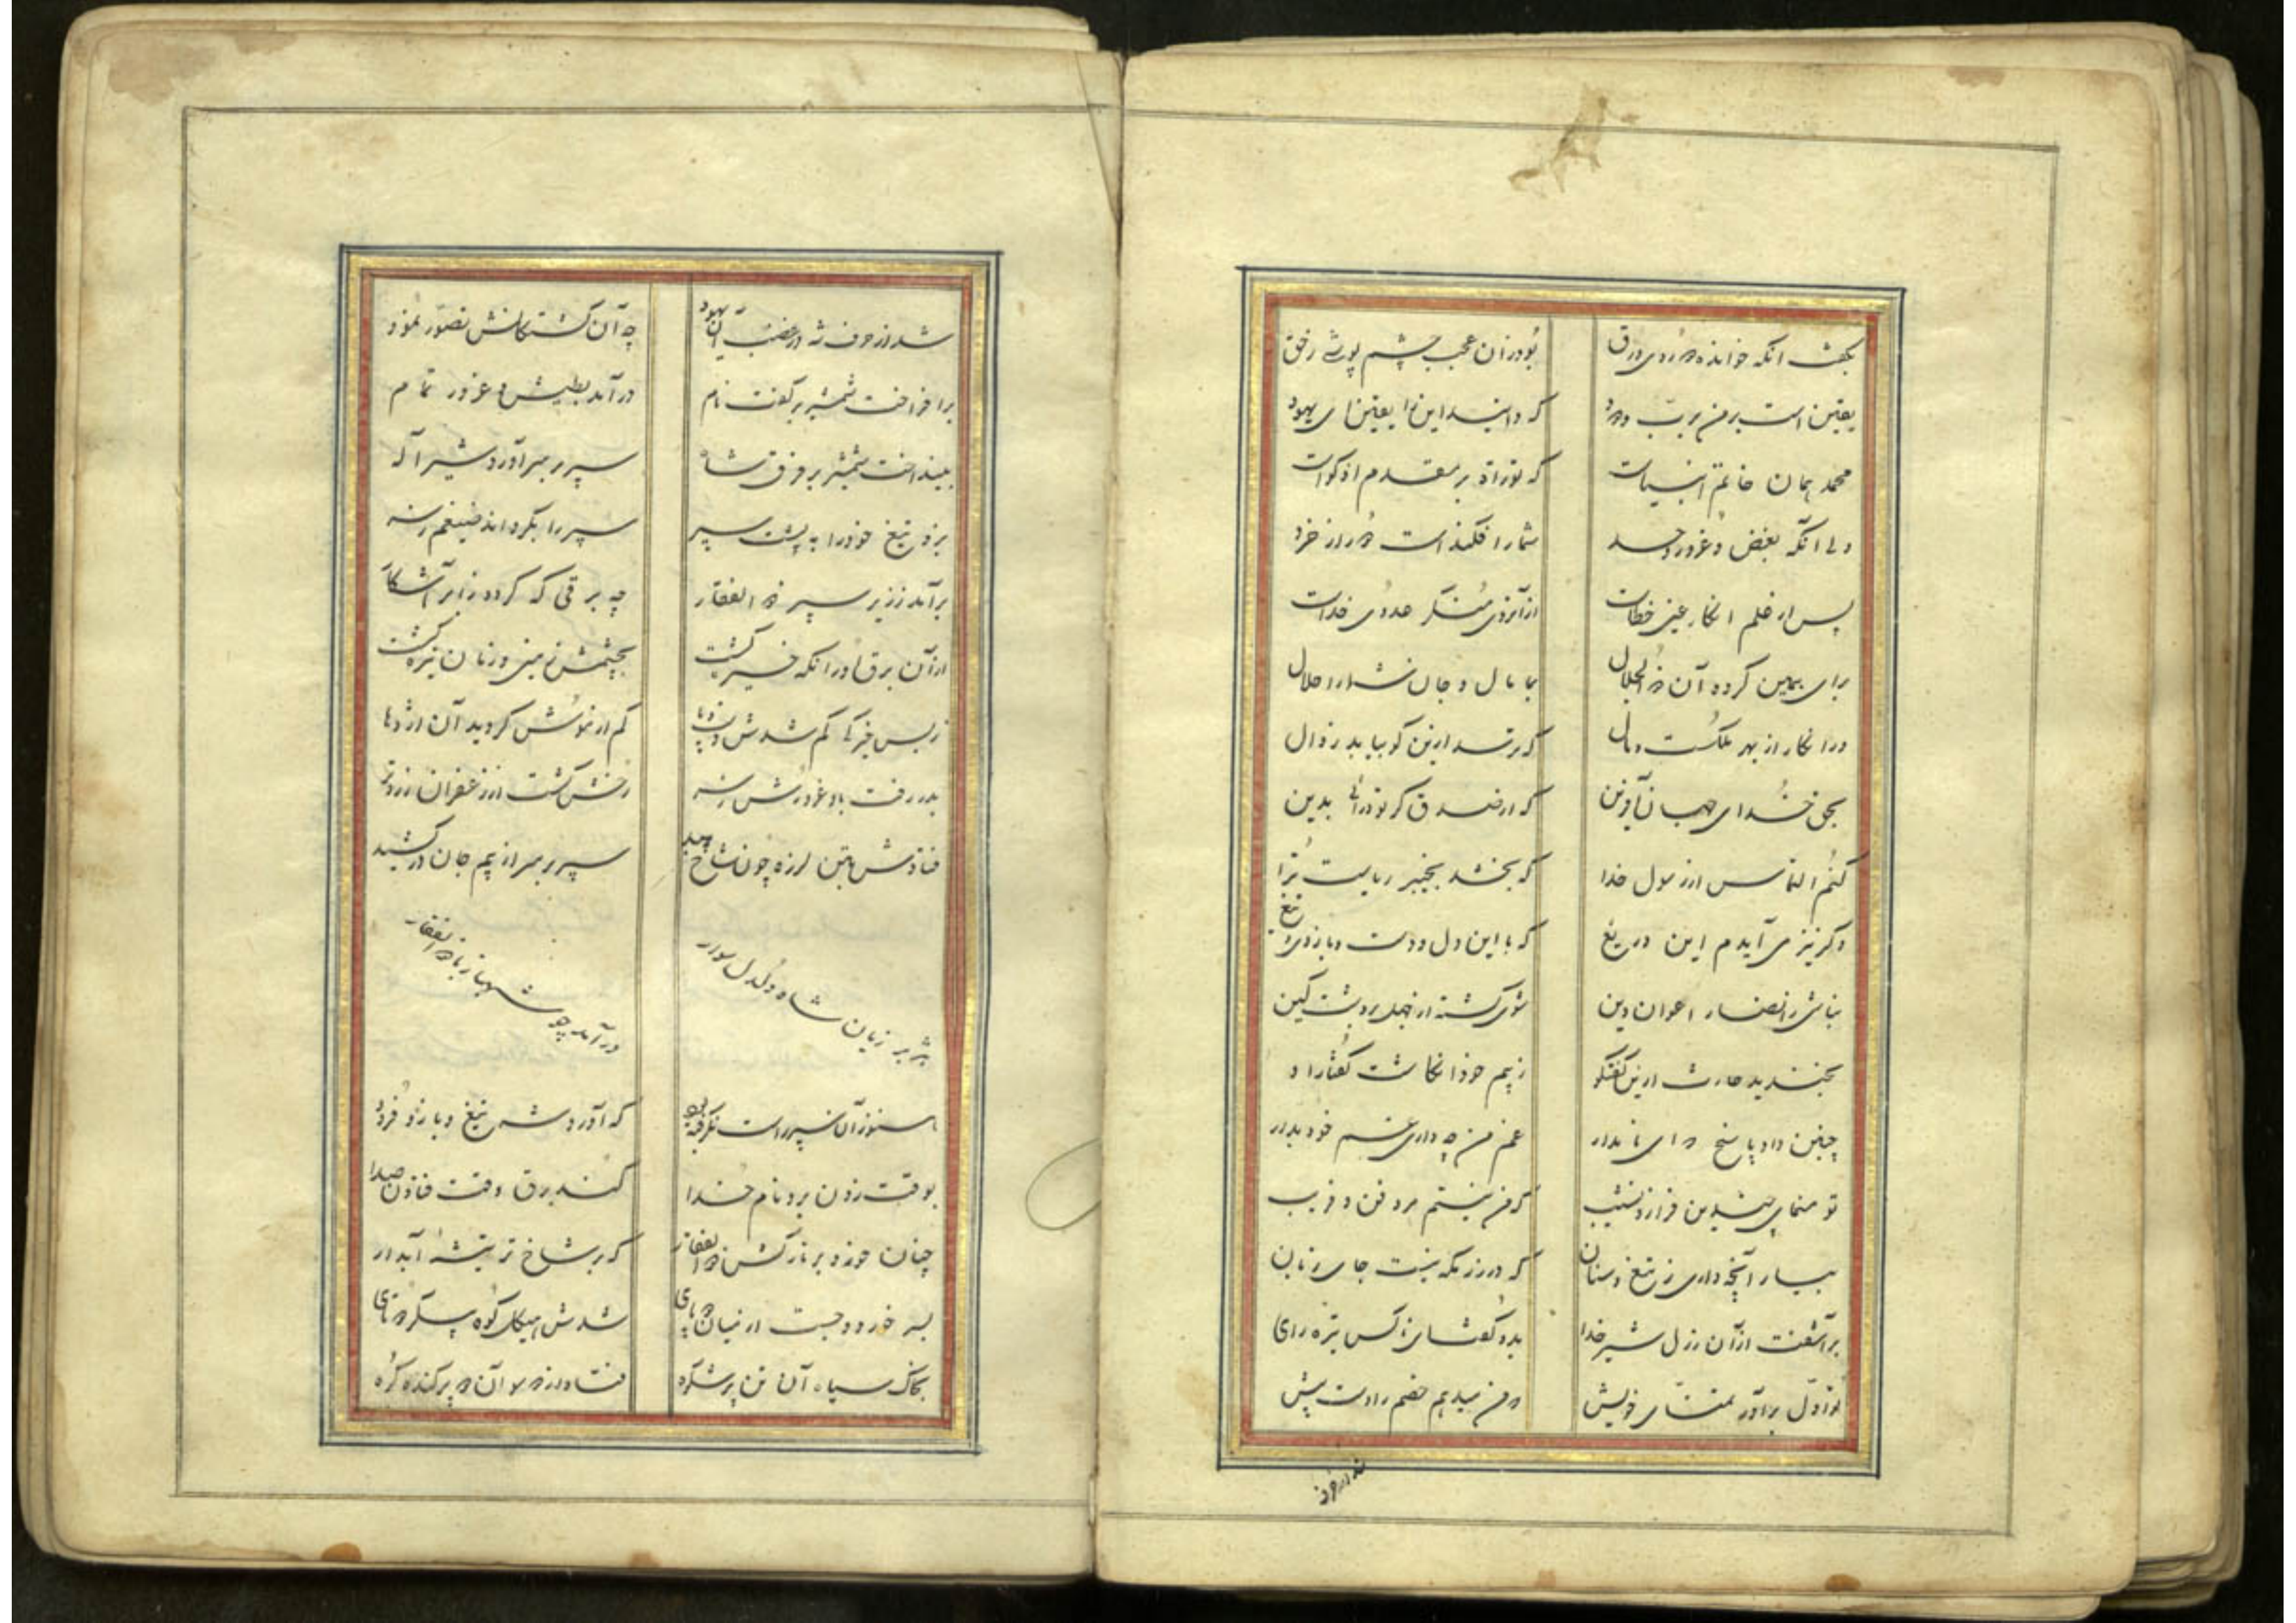 بگفت انکه خوانده در روی ورق بود زان عجب چشم پوشی ز حق
یقین است بر من برب ودود که دانید این را یقین ای یهود
محمد همان خاتم انبیاست که توراة بر مقدم او گواست
ولی انکه بغض و غرور و حسد شما را فکنداست دور از خرد
پس از علم انکار عین خطاست از آنروی منکر عدوی خداست
برای همین کرده آن ذوالجلال بما مال و جان شما را حلال
ورا انکار از بهر ملکست و مال که ترسد ازین کو بیابد زوال
بحق خدای جهان آفرین که از صدق گر تو درائی بدین
کنم التماس از رسول خدا که بخشد بخیبر ریاست ترا
وگر نیز می آیدم این دریغ که با این دل و دست و بازوی تیغ
نباشی ز انصار اعوان دین شوی کشته از جهل بر دشت کین
بخندید حارث ازین گفتگو ز بیم خود انگاشت گفتار او
چنین داد پاسخ که ای نامدار غم من چه داری غم خود بدار
تو منمای چندین فراز و نشیب که من نیستم مرد فن و فریب
بیار آنچه داری ز تیغ و سنان که در رزمگه نیست جای زبان
برآشفت از آن رذل شیر خدا بدو گفت کای ناکس تیره رای
تو اول برآور تمنای خویش که من میدهم خصم را دست پیش
شد از حرف شه در غضب آن یهود چه آن کشتگانش تصور نمود
برافراخت شمشیر بر گفت نام درآمد بطیش و غرور تمام
بینداخت شمشیر بر فرق شاه سپر بر سر آورد شیر اله
بزد تیغ خود را به پشت سپر سپر را بگرداند ضیغم ز سر
برآمد ز زیر سپر ذوالفقار چه برقی که گردد ز ابر آشکار
از آن برق او را نگه خیره گشت بچشمش زمین و زمان تیره گشت
ز بس خیرگی گم شدش دست و پا کم از موش گردید آن اژدها
بدر رفت باد غرورش ز سر رخش گشت از زعفران زردتر
فتادش بتن لرزه چون شاخ بید سپر بر سر از بیم جان درکشید
هژبر ژیان شاه دلدل سوار درآمد چو شهباز با ذوالفقار
هنوز آن سپر راست نگرفته بود که آورد شه تیغ و بازو فرود
بوقت زدن برد نام خدا کند برق وقت فتادن صدا
چنان خورد بر تارکش ذوالفقار که بر شاخ تر تیشهٔ آبدار
بسر خورد و جست از میان دو پای شدش هیکل کوه پیکر دو تای
بخاک سیاه آن تن پرشکوه فتاد از دو سو آن دو پرکنده کوه
شد از حرف